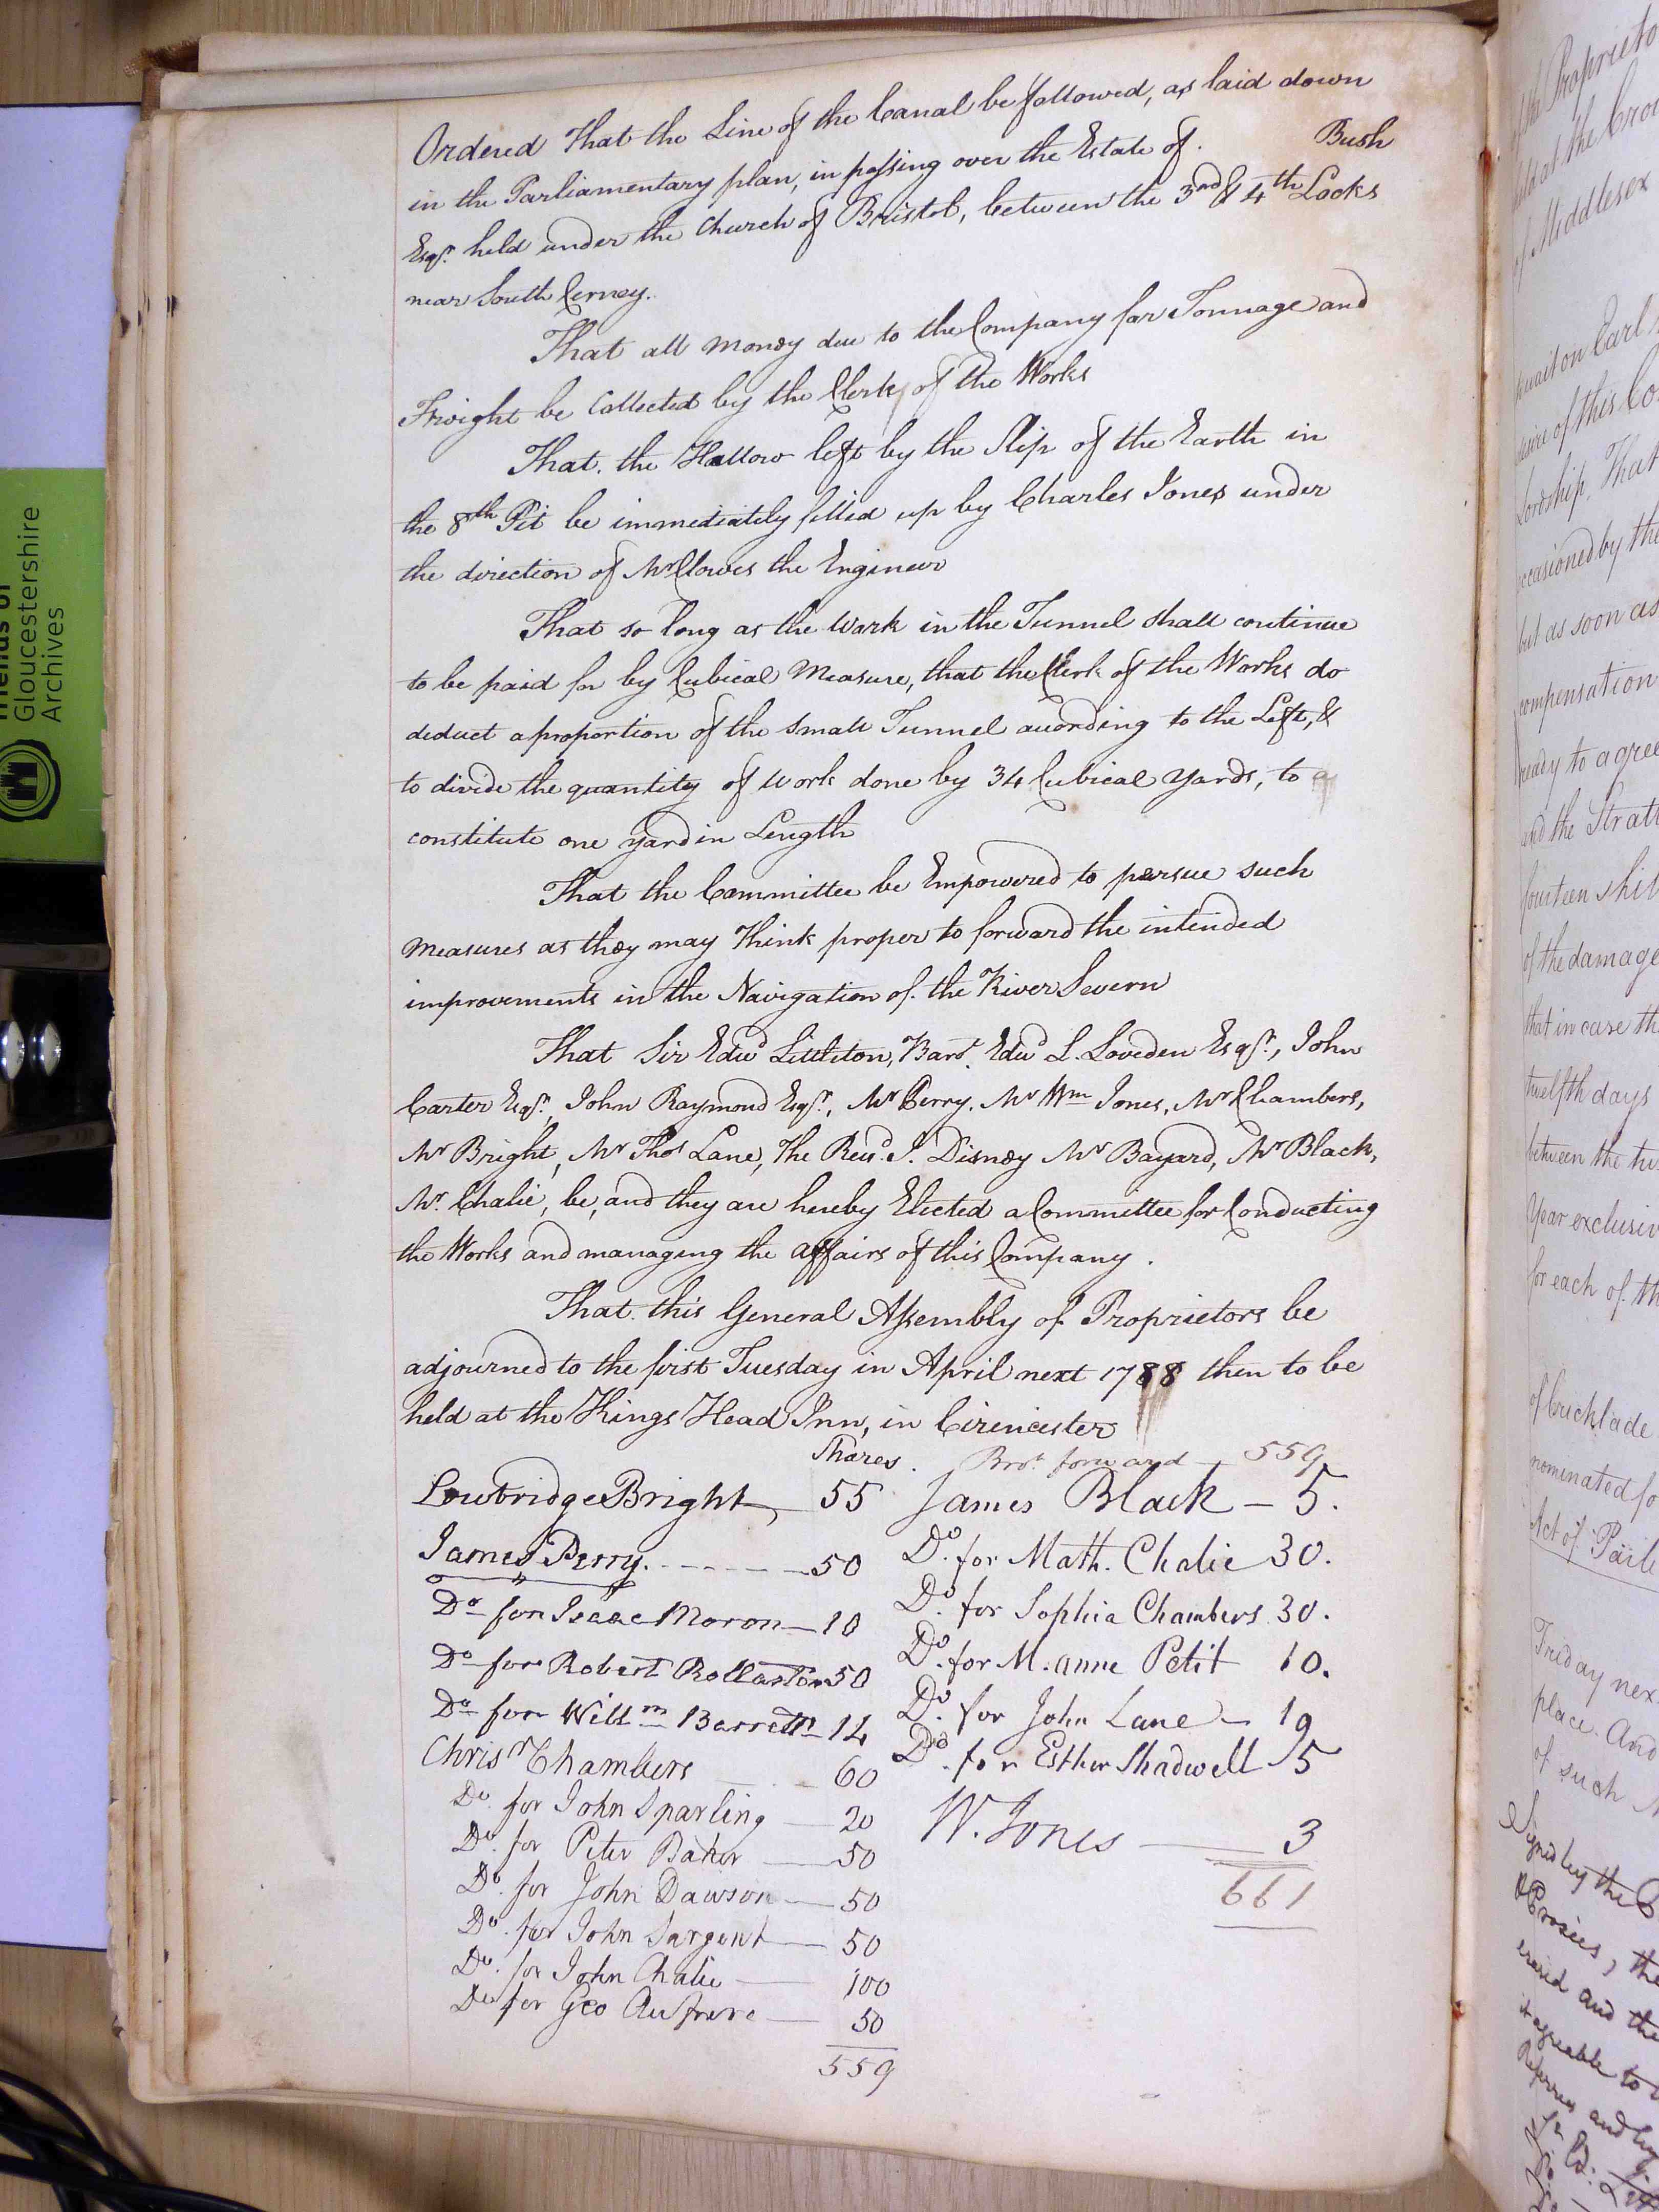 Ordered That the Line of the Canal be followed, as laid down
in the Parliamentary plan, in passing over the Estate of . Bush
Esqr. held under the Church of Bristol, between the 3rd & 4th Locks
near South Cerney.
That all money due to the Company for Tonnage and
Freight be Collected by the Clerk of the Works
That. the Hollow left by the Slip of the Earth in
the 8th Pit be immediately filled up by Charles Jones under
the direction of Mr Clowes the Engineer
That so long as the Work in the Tunnel shall continue
to be paid for by Cubical Measure, that the Clerk of the Works do
deduct a proportion of the small Tunnel according to the Left, &
to divide the quantity of work done by 34 Cubical Yards, to
constitute one yard in Length
That the Committee be Empowered to persue such
measures as they may Think proper to forward the intended
improvements in the Navigation of the River Severn
That Sir Edwd Littleton, Bart. Edwd L. Loveden Esqr., John
Carter Esqr., John Raymond Esqr., Mr Perry, Mr Wm Jones, Mr Chambers,
Mr Bright, Mr Thos Lane, The Revd. J. Disney Mr Bayard, Mr Black,
Mr. Chalie, be, and they are hereby Elected a Committee for Conducting
the Works and managing the affairs of this Company.
That. this General Assembly of Proprietors be
adjourned to the first Tuesday in April next 1788 then to be
held at the Kings Head Inn, in Cirencester
Shares.
Lowbridge Bright 55
James Perry. 50
Do for Isaac Moron 10
Do for Robert Rollaston 50
Do for Willm Barrett 14
Chrisr Chambers 60
Do. for John Sparling 20
Do. for Peter Baker 50
Do. for John Dawson 50
Do. for John Sargent 50
Do. for John Chalie 100
Do for Geo Aufrere 50
559
Brot forward 559
James Black 5.
Do. for Math. Chalie 30.
Do. for Sophia Chambers 30.
Do. for M. anne Petit 10.
Do. for John Lane 19
Do. for Esther Shadwell 5
W. Jones 3
661
Friends of
Gloucestershire
Archives
of Middlesex
Lordship. That
but as soon as
compensation
ready to agree
of the damage
that in case th
twelfth days
Year exclusiv
for each of th
of Cricklade
nominated fo
Act of Parli
Friday nex
place. And
of such
Signed by the